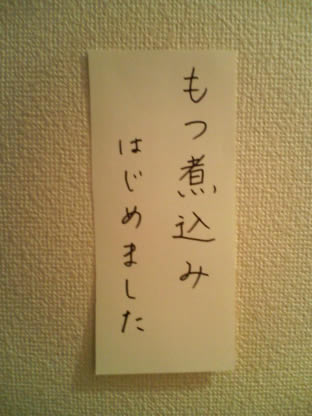 もつ煮込み
はじめました